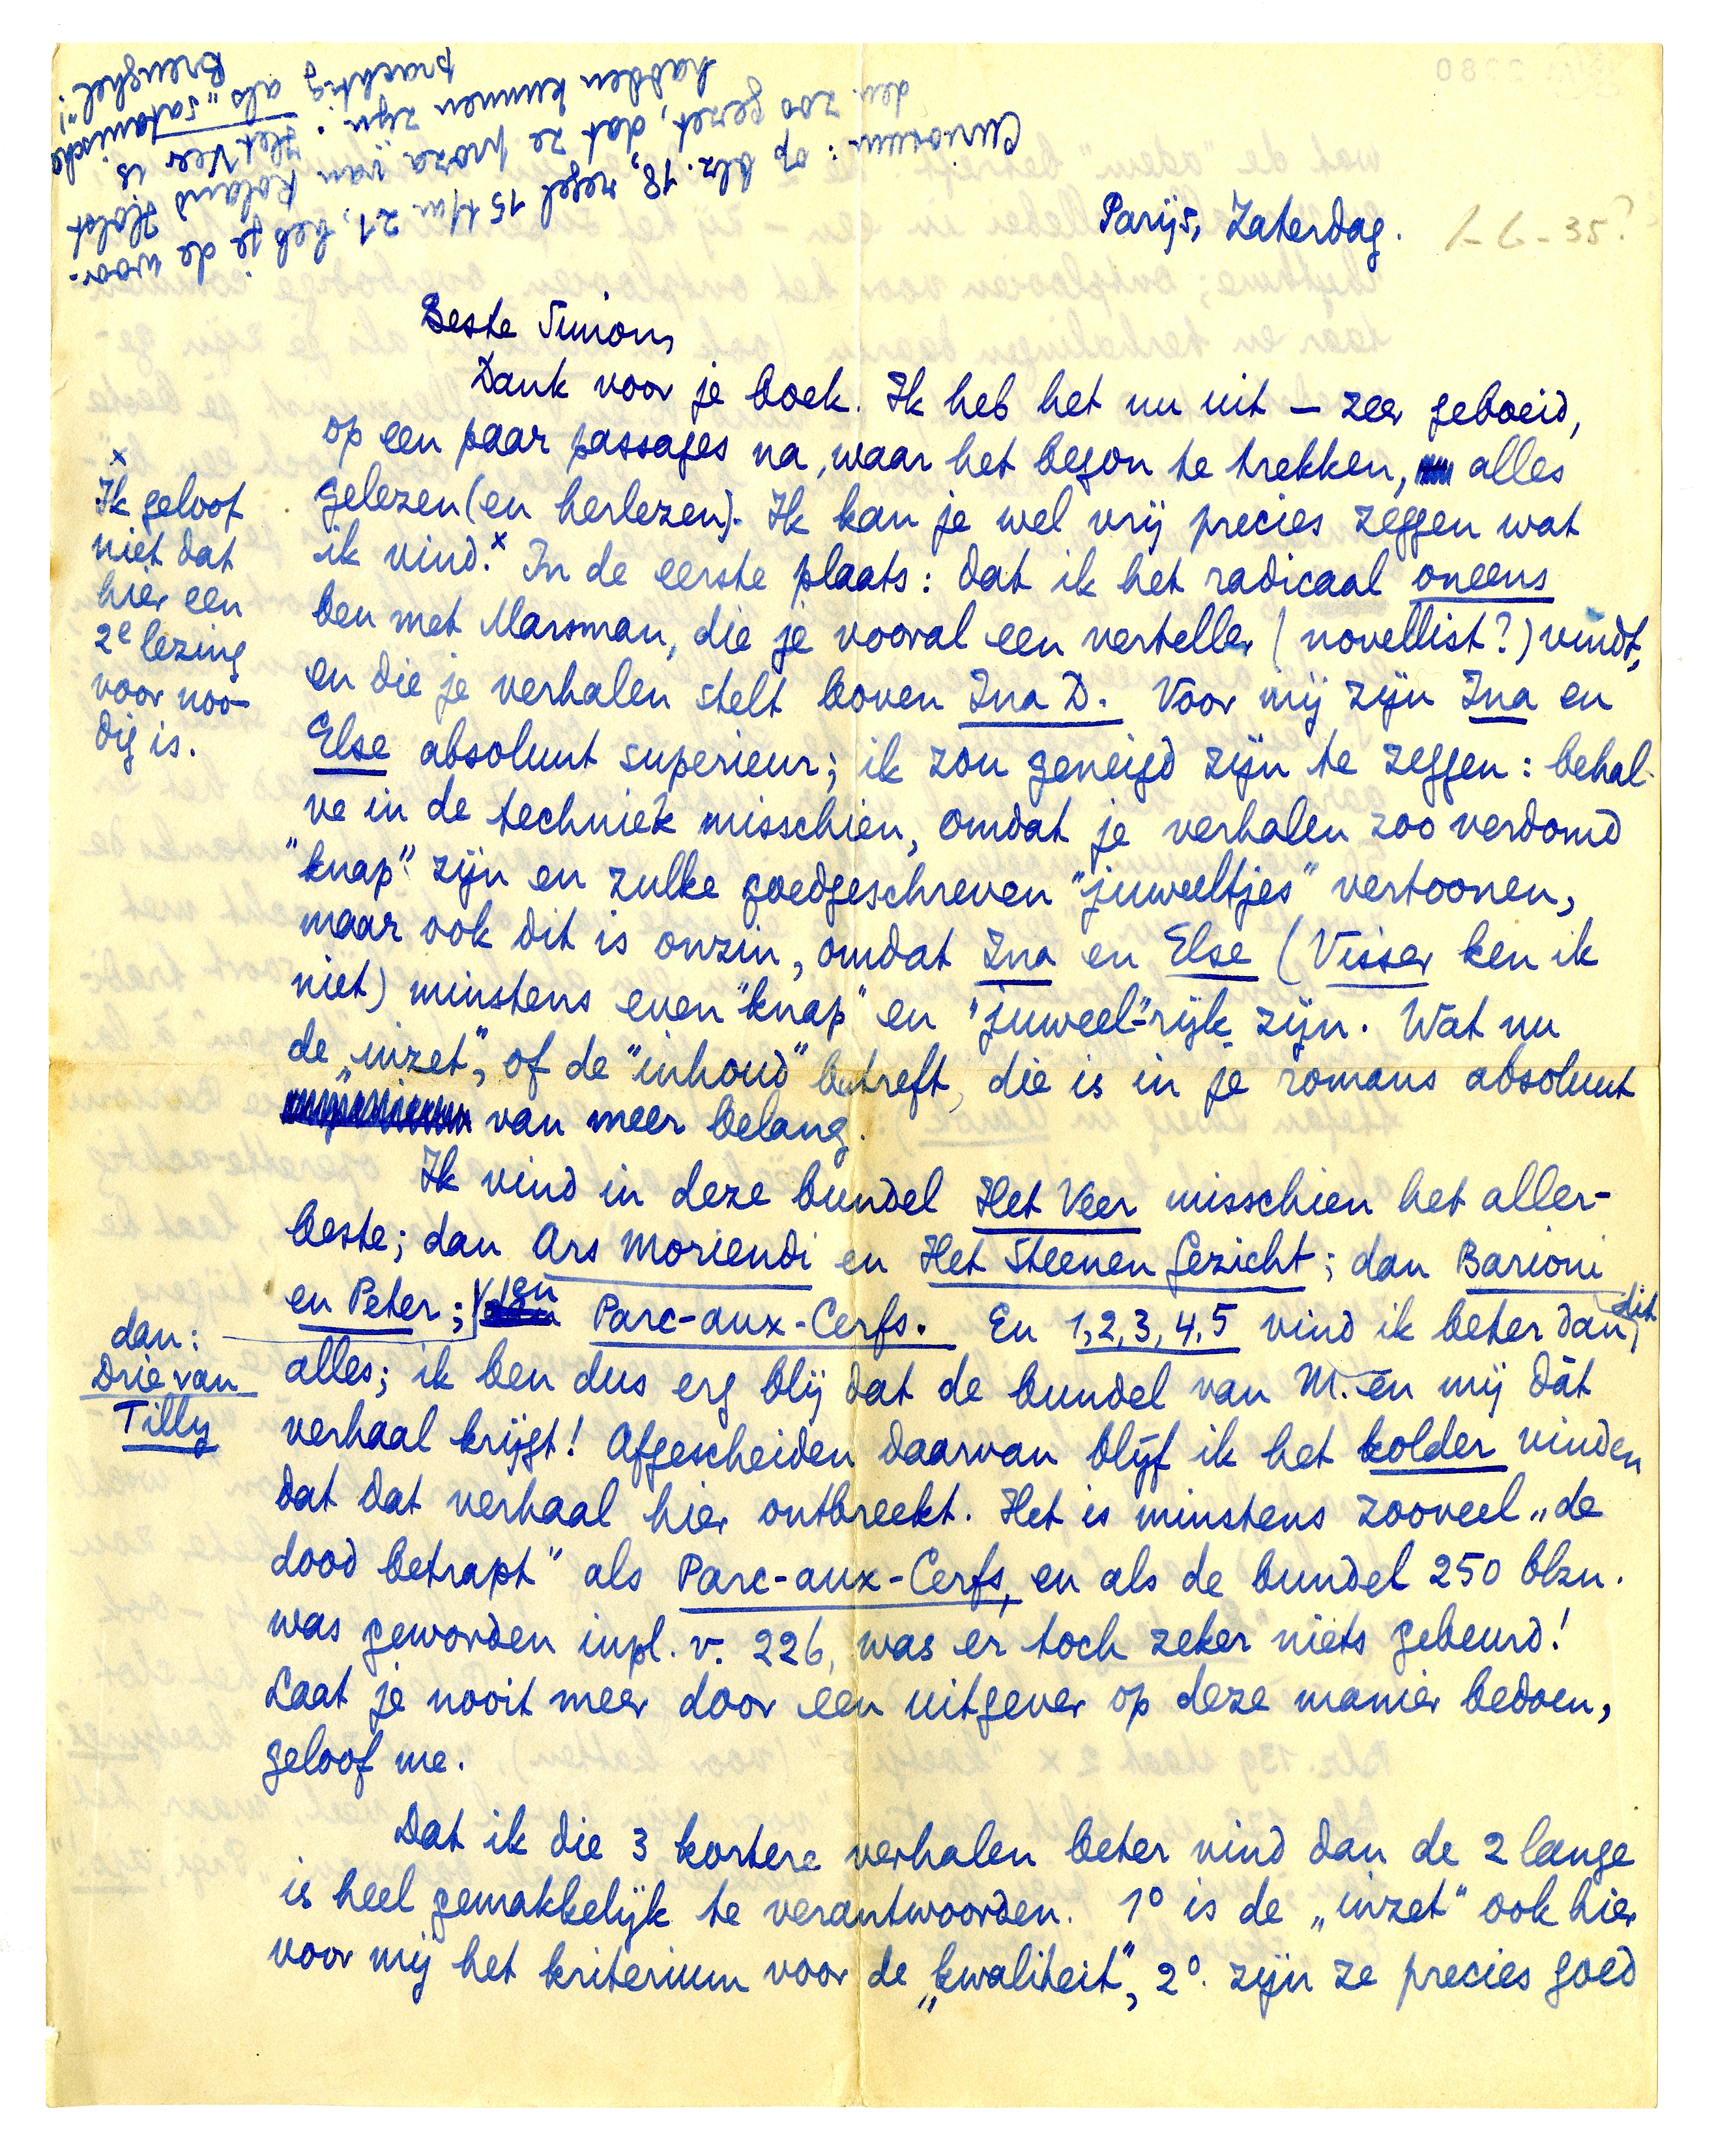 Curiosum: op blz. 18, regel 15 t/m 21, heb je de woor-
den zoo gezet, dat ze proza van Roland Holst
hadden kunnen zijn. Het Veer is
prachtig als "satanische
Breughel"!
Parijs, Zaterdag. 1-6-35?
Beste Simon,
Dank voor je boek. Ik heb het nu uit — zeer geboeid,
op een paar passages na, waar het begon te trekken, alles
gelezen (en herlezen). Ik kan je wel vrij precies zeggen wat
ik vind.x In de eerste plaats: dat ik het radicaal oneens
ben met Marsman, die je vooral een verteller (novellist?) vindt,
en die je verhalen stelt boven Ina D. Voor mij zijn Ina en
Else absoluut superieur; ik zou geneigd zijn te zeggen: behal-
ve in de techniek misschien, omdat je verhalen zoo verdomd
"knap" zijn en zulke goedgeschreven "juweeltjes" vertoonen,
maar ook dit is onzin, omdat Ina en Else (Visser ken ik
niet) minstens even "knap" en "juweel"-rijk zijn. Wat nu
de „inzet", of de "inhoud" betreft, die is in je romans absoluut
van meer belang.
x
Ik geloof
niet dat
hier een
2e lezing
voor noo-
dig is.
Ik vind in deze bundel Het Veer misschien het aller-
beste; dan Ars Moriendi en Het Steenen Gezicht; dan Barioni
en Peter; en Parc-aux-Cerfs. En 1,2,3,4,5 vind ik beter dan dit
dan:
Drie van
Tilly
alles; ik ben dus erg blij dat de bundel van M. en mij dàt
verhaal krijgt! Afgescheiden daarvan blijf ik het kolder vinden
dat dat verhaal hier ontbreekt. Het is minstens zooveel „de
dood betrapt" als Parc-aux-Cerfs, en als de bundel 250 blzn.
was geworden inpl. v. 226, was er toch zeker niets gebeurd!
Laat je nooit meer door een uitgever op deze manier bedoen,
geloof me.
Dat ik die 3 kortere verhalen beter vind dan de 2 lange
is heel gemakkelijk te verantwoorden. 1° is de „inzet" ook hier
voor mij het kriterium voor de „kwaliteit", 2° zijn ze precies goed